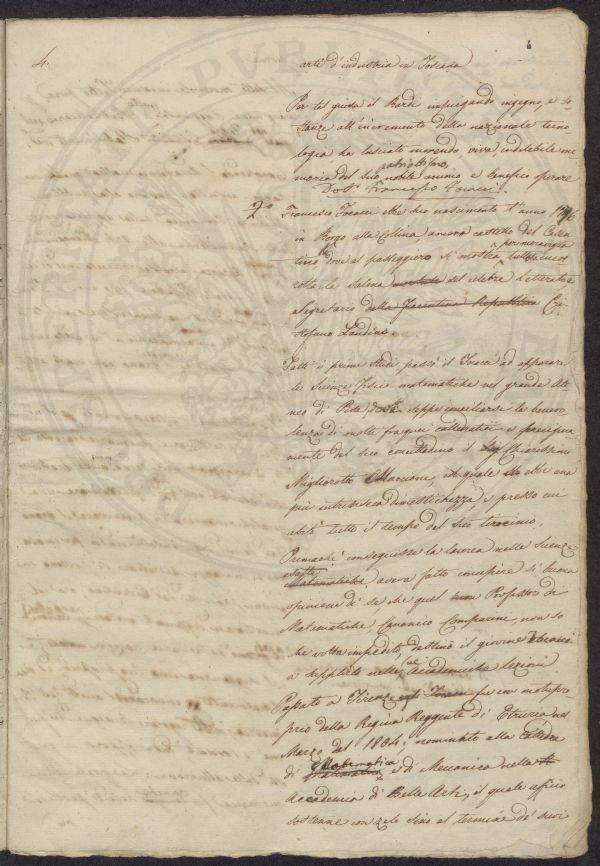 4.
6
arti d'industria in Toscana
Per tal guisa il Bardi impiegando ingegno, e so-
stanze all'incremento della nazionale tecno
logia ha lasciato morendo, viva indelebile me-
moria del suo nobile animo e benefico operare
patriottismo,
Dott. Francesco Focacci.
2° Francesco Focacci ebbe suo nascimento l'anno 1776
in Borgo alla Collina, ameno castello del Casen
tino dove al passeggero si mostra tuttora incor
per meraviglia
rotta la salma del celebre Letterato
Segretario della Fiorentina Repubblica Cri-
stofano Landino.
Fatti i primi Studi, passò il Focacci ad apparare
le Scienze Fisico matematiche nel grande Ate
neo di Pisa, dove seppe conciliarsi la benevo
lenza di molti fra quei cattedratici e precipua-
mente del suo concittadino il Chiarissimo
Migliorotto Maccioni, col quale ebbe una
più intrinseca dimestichezza, e presso cui
abitò tutto il tempo del suo tirocinio.
Primachè conseguisse la laurea nelle Scienze
esatte
Matematiche aveva fatto concepire sì buona
opinione di se che quel Professore di
Matematiche Canonico Comparini, non so
che volta impedito, destinò il giovine Focacci
a supplirlo nelle Accademiche lezioni
Passato a Firenze fu con motupro
prio della Regina Reggente di Etruria nel
Marzo del 1804, nominato alla cattedra
di Matematica e di Meccanica nella
Accademia di Belle Arti, il quale ufficio
sostenne con zelo sino al termine de' suoi